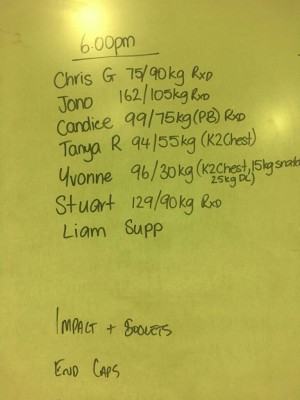 6.00pm
Chris G 75/90kg RxD
Jono 162/105kg RxD
Candice 99/75kg (PB) RxD
Tanya R 94/55kg (K2Chest)
Yvonne 96/30kg (K2Chest, 15kg snatch
25kg DL)
Stuart 129/90kg RxD
Liam Supp
IMPACT +
END CAPS